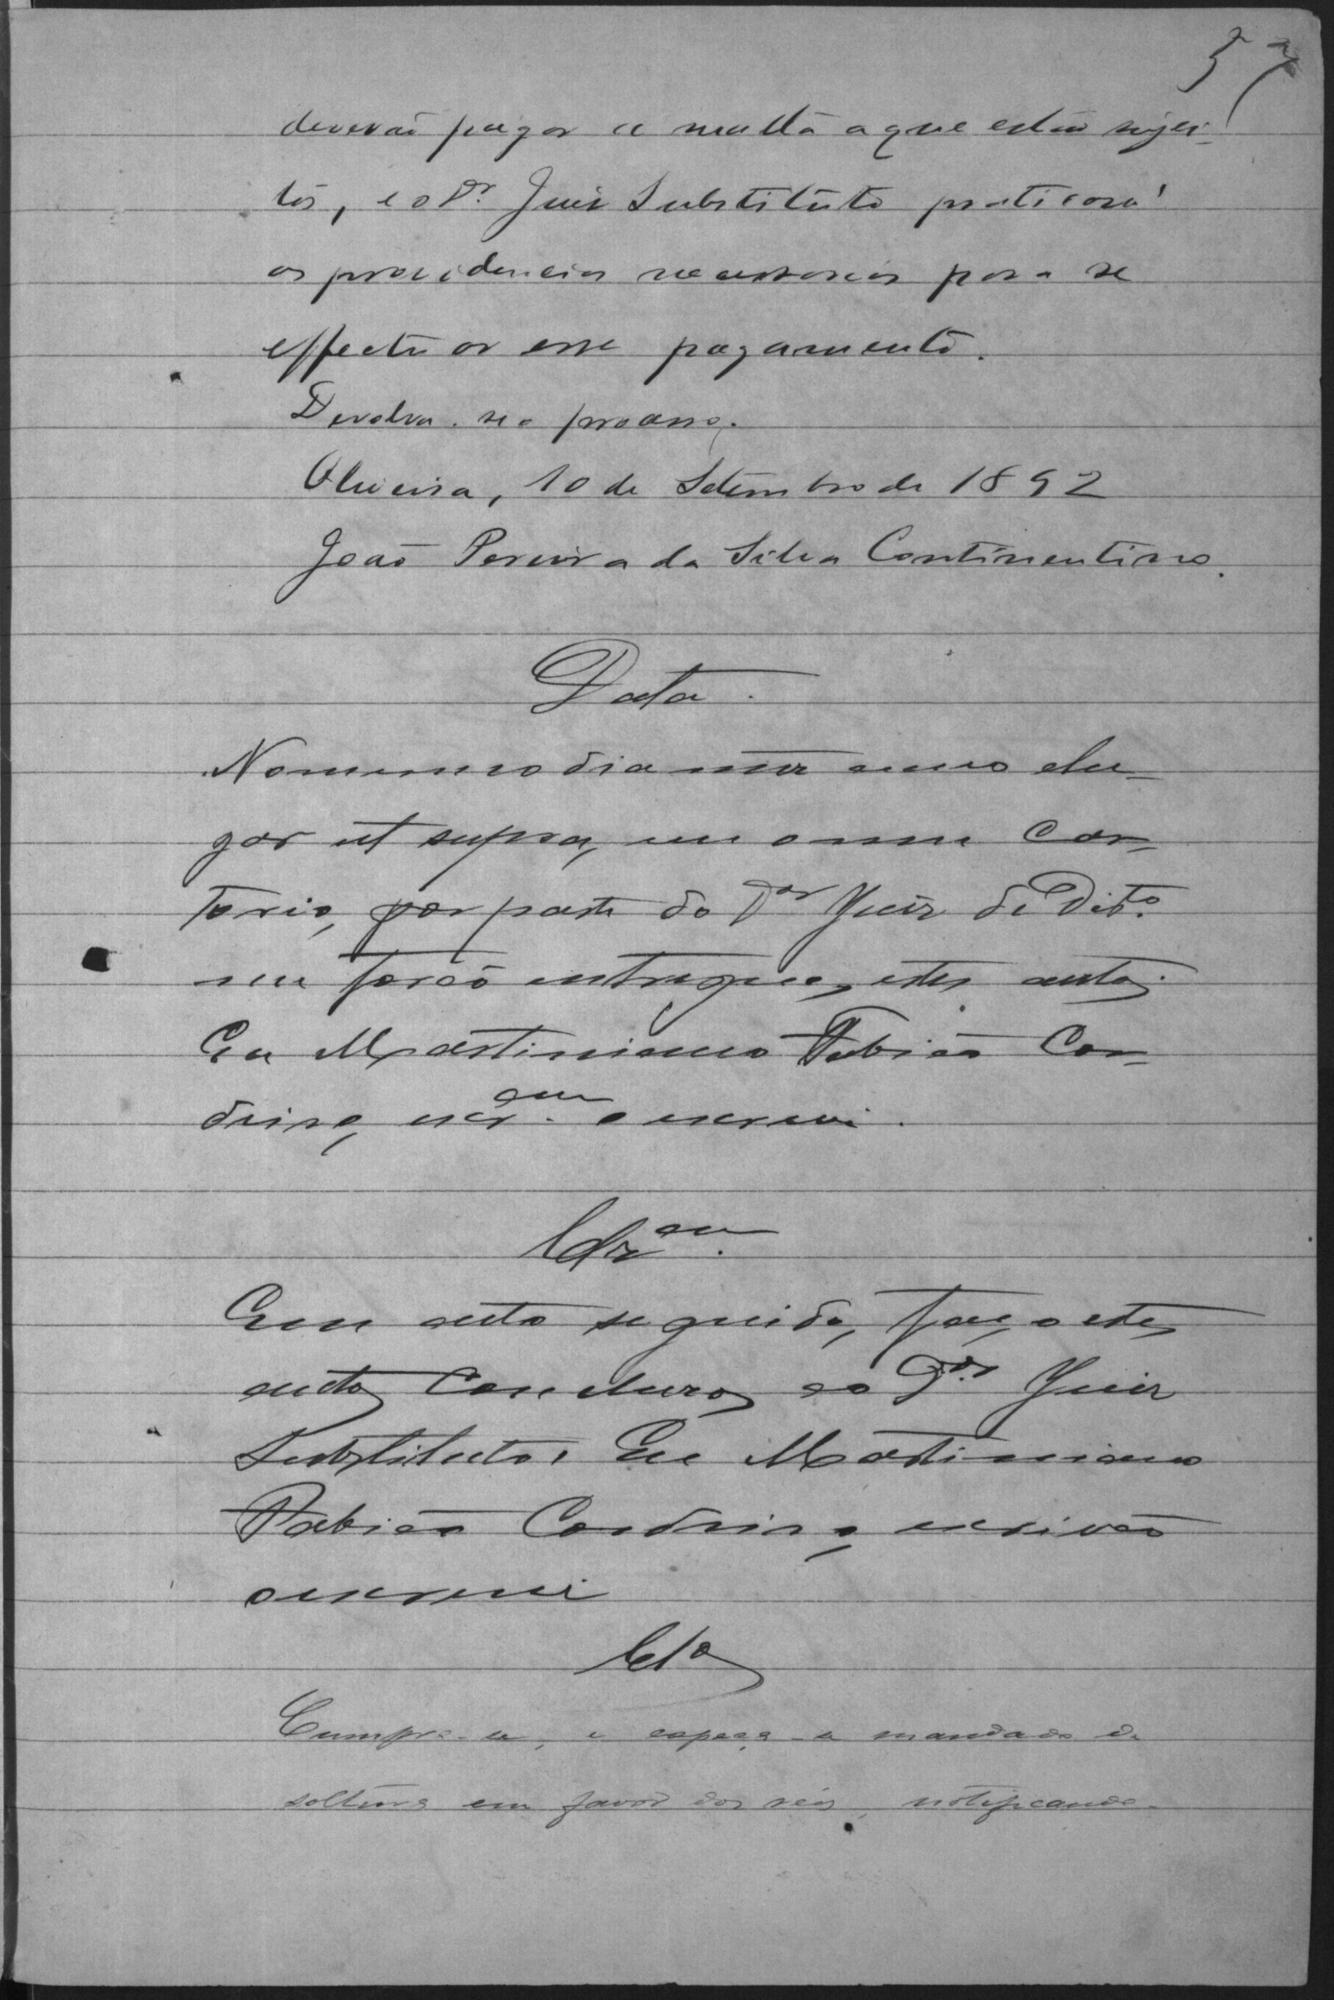 57
deverão pagar a multa a que estão sujei-
tos, e o Dr. Juiz Substituto praticará
as providencias necessarias para se
effectuar esse pagamento.
Devolva-se o processo.
Oliveira, 10 de Setembro de 1892
João Pereira da Silva Continentino.
Data.
No mesmo dia mez anno e lu-
gar ut supra, em o meu Car-
torio, por parte do Dor Juiz de Dirto.
me forão entregues, estes autos.
Eu Martiniano Fabião Con-
drino, escram. o escrevi.
Clzam.
Em acto seguido, faço estes
autos conclusos ao Dor. Juiz
Substituto. Eu Martiniano
Fabião Condrino, escrivão
o escrevi
Clos
Cumpra-se, e expeça-se mandado de
soltura em favor dos réos, notificando-